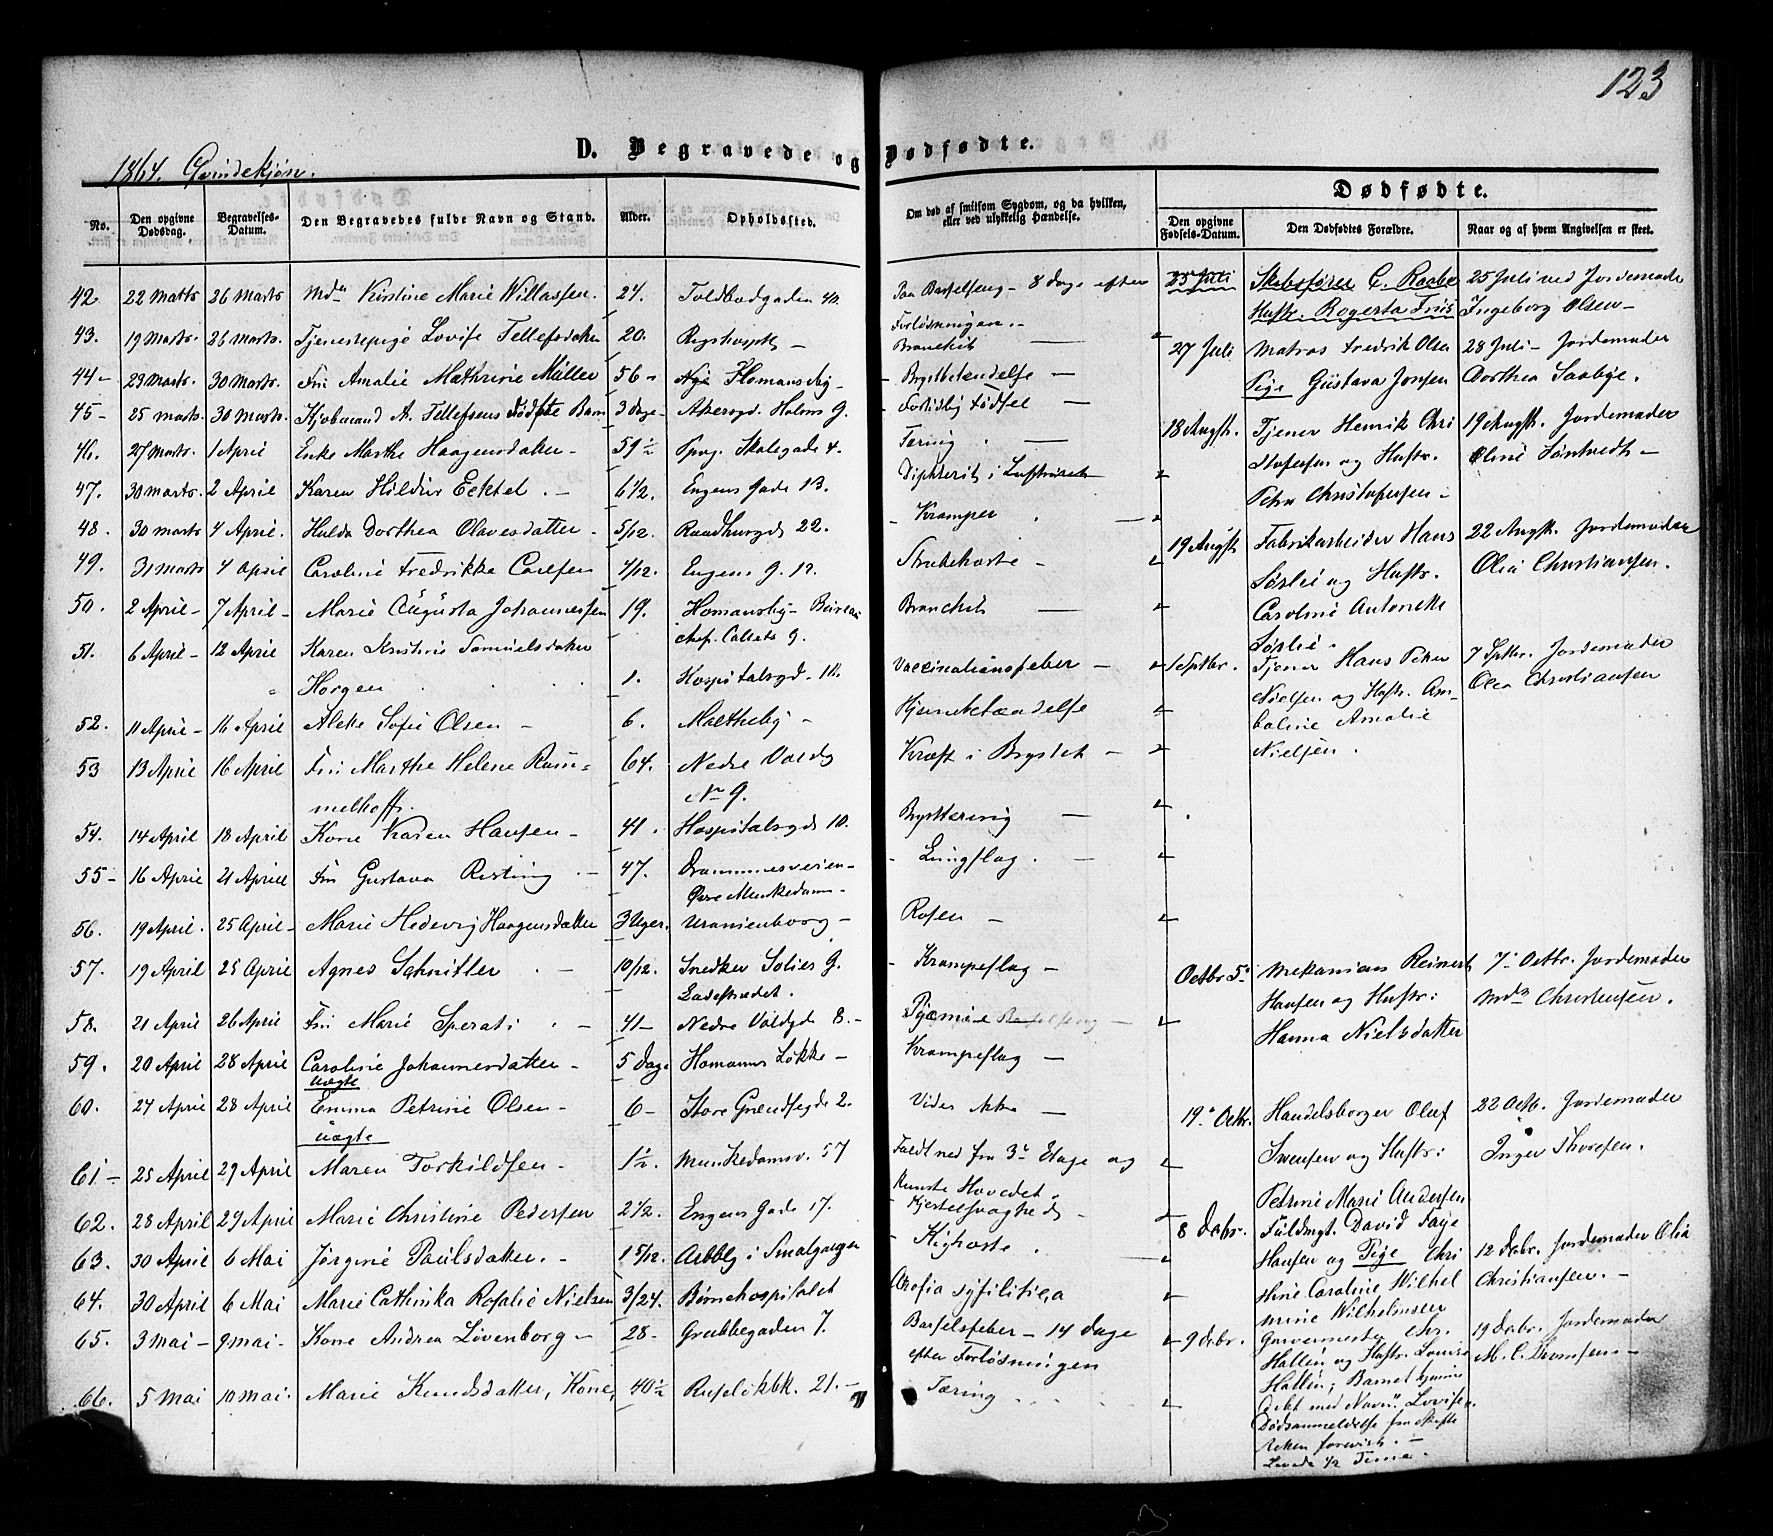 123
D. Begravede og Dødfødte.
1864. Qvindekjøn.
Dødfødte.
No. Den opgivne Dødsdag. Begravelses-Datum. Den Begravedes fulde Navn og Stand. Alder. Opholdssted. Om død af smitsom Sygdom, og da hvilken, eller ved ulykkelig Hændelse. Den opgivne Fødsels-Datum. Den Dødfødtes Forældre. Naar og af hvem Angivelsen er skeet.
42 22 Marts 26 Marts Mda Kristine Marie Willassen. 24. Toldbodgaden 40. Paa Barselseng - 8 Dage efter
Forløsningen.
43. 19 Marts. 26 Marts. Tjenestepige Lovise Tellefsdatter 20. Rigshospt Bronchit
44 23 Marts. 30 Marts. Fru Amalie Mathrine Müller 56 Nye Homansby Brystbetændelse
45 25 Marts. 30 Marts. Kjøbmand A. Tellefsens dødfødte Barn 3 dage Akersgd. Holms G. Fortidlig Fødsel
46. 27 Marts. 1 April Enke Marthe Haagensdatter 59½ Pprog. Skolegade 4. Tæring
47. 30 Marts 2 April Karen Hildur Ecktel 6½. Engens Gade 13. Diphterit i Luftrøret
48. 30 Marts 4 April. Hulda Dorthea Olavesdatter 5/12. Raadhusgd 22. Kramper
49. 31 Marts 4 April Caroline Fredrikke Carlsen 4/12. Engens G. 12. Strubehoste
50. 2 April 7 April Marie Augusta Johannessen 19. Homansby Bureau
chef. Colletts G. Bronchit
51. 6 April 12 April Karen Kristine Samuelsdatter
Horgen 1. Hospitalsgd. 10. Vaccinationsfeber
52. 11 April 16 April Alette Sofie Olsen 6. Maltheby Hjernebetændelse
53 13 April 16 April Fru Marthe Helene Rum=
melhoff. 64. Nedre Voldg
No 9. Kræft i Brystet
54. 14 April 18 April Kone Karen Hansen 41. Hospitalsgd 10. Brysttæring
55 16 April 21 April Fru Gustava Risting 47. Drammensveien
Øvre Munkedam Lungeslag.
56. 19 April. 25 April Marie Hedevig Haagensdatter 3 Uger. Uranienborg Rosen
57. 19 April 25 April Agnes Schnitler 10/12. Snedker Solies G.
Ladestrædet. Krampeslag
58. 21 April 26 April Fru Marie Sperati 41 Nedre Voldgd 8. Pyæmie Barselseng
59. 20 April 28 April Caroline Johannesdatter
uægte 5 Dage Homanns Løkke Krampeslag
60. 24 April 28 April Emma Petrine Olsen
uægte 6 Store Grændsegd 2. Vides ikke
61 25 April 29 April Maren Torkildsen 1½. Munkedamsv. 57 Faldt ned fra 3de Etage og
knuste Hovedet.
62. 28 April 29 April Marie Christine Pedersen 2½. Engens Gade 17. Kjertelsvaghed
63. 30 April 6 Mai Jørgine Paulsdatter. 1 5/12. Arbbg i Smalgangen Kighoste
64. 30 April 6 Mai Marie Cathinka Rosalie Nielsen 3/24. Børnehospitalet Atrofia syfilitica
65. 3 Mai 9 Mai Kone Andrea Livenborg 28 Grubbegaden 7. Barselsfeber - 14 Dage
efter Forløsningen
66. 5 Mai 10 Mai. Marie Knudsdatter, Kone, 40½ Ruseløkbk. 21. Tæring
25 Juli Skibsfører C. Raabe
Hustr. Rogerta Friis 25 Juli ved Jordemoder
Ingeborg Olsen
27 Juli Matros Fredrik Olsen
Pige Gustava Jonsen 28 Juli Jordemoder
Dorthea Saabye.
18 Augst. Tjener Henrik Chri
stofersen og Hustr.
Petra Christofersen 19 Augst. Jordemoder
Oline Søntvedt
19 Augst Fabrikarbeider Hans
Sørlie og Hustr.
Caroline Antonette
Sørlie. 22 Augst. Jordemoder
Olea Christiansen.
1 Septbr. Tjener Hans Peter
Nielsen og Hustr. Am
baline Amalie
Nielsen. 7 Sptbr. Jordemoder
Olea Christiansen
Octbr 5 Mekanicus Reinert
Hansen og Hustr:
Hanna Nielsdatter 7 Octbr. Jordemoder
Mda Christensen.
19 Octbr. Handelsborger Oluf
Svensen og Hustr:
Petrine Marie Andersen 22 Octb. Jordemoder
Inger Thoresen.
8 Decbr. Fuldmgt. David Faye
Hansen og Pige Chri
stine Caroline Wilhel
mine Wilhelmsen 12 Decbr. Jordemoder Olea
Christiansen.
9 Decbr. Garvermester Chr.
Hallin og Hustr. Lovise
Hallin; Barnet hjemme
døbt med Navn: Lovise.
Dødsanmeldelse fra Skifte
retten forevist. 19 Decbr. Jordemoder
M. C. Thomsen
Levede ½ Time.